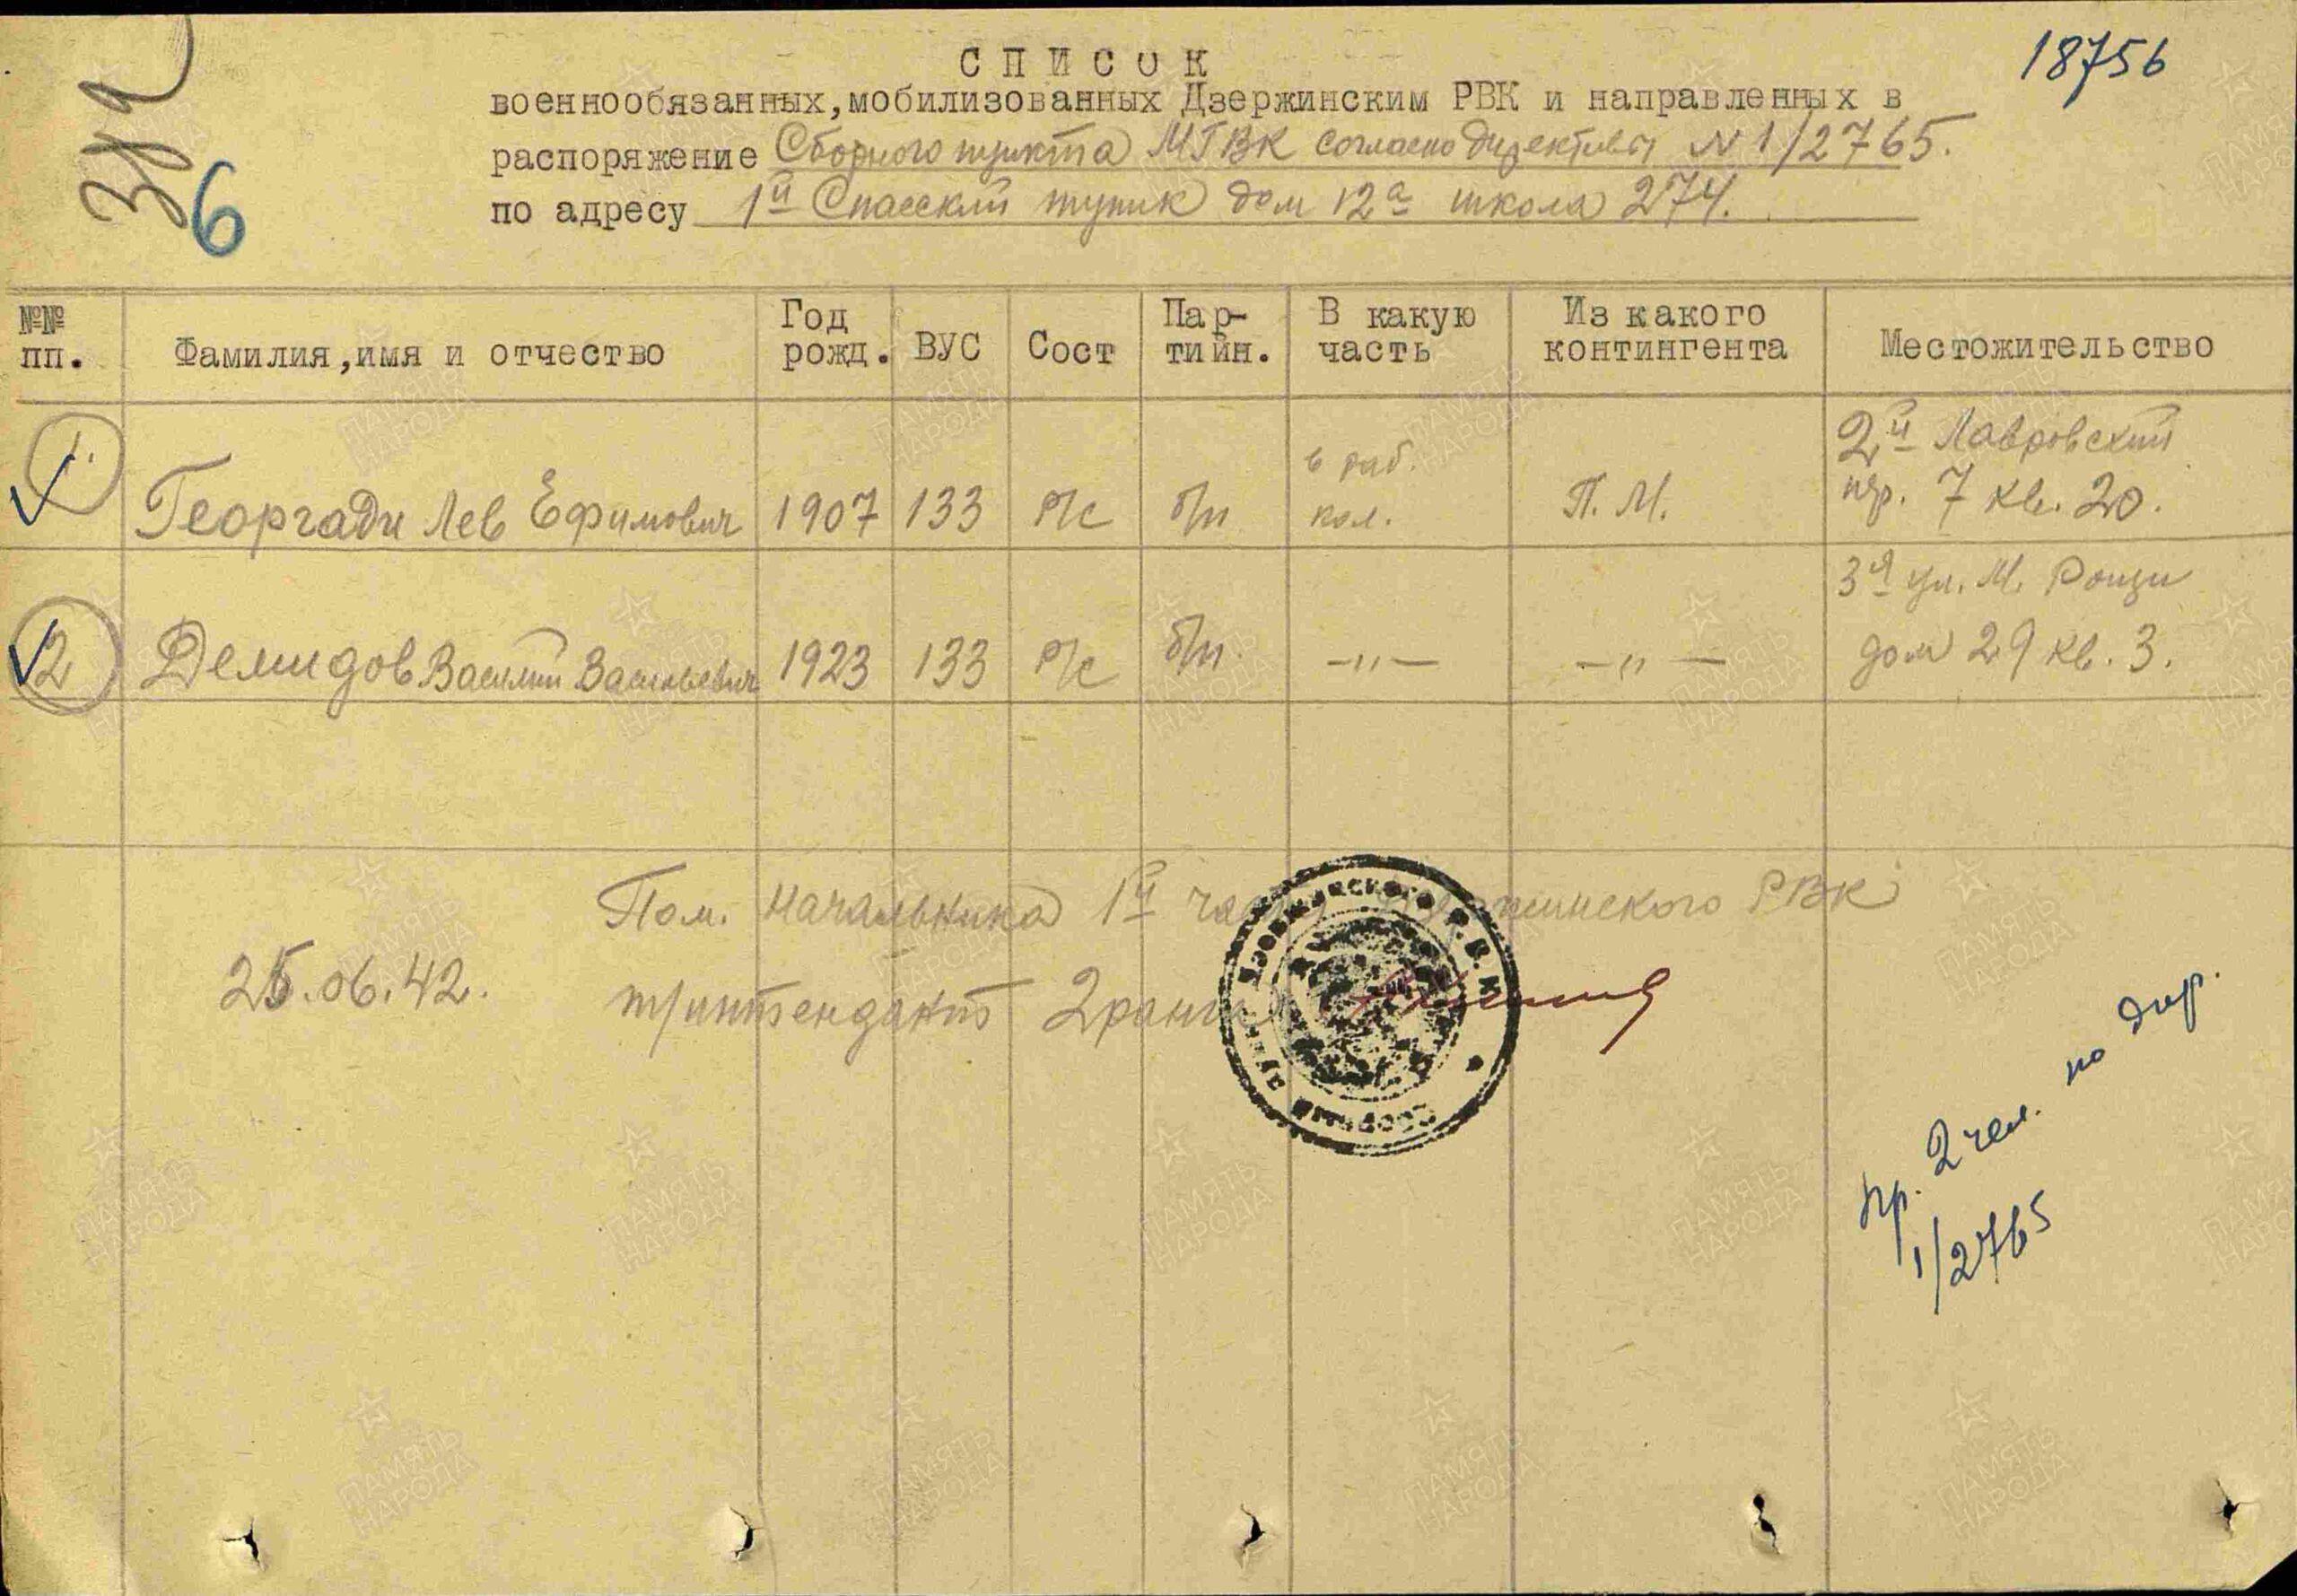 18756
Зуа
6
СПИСОК
военнообязанных, мобилизованных Дзержинским РВК и направленных в
распоряжение Сборного пункта МГВК согласно директивы N 1/2765.
по адресу 1й Спасский тупик дом 12а школа 274.
№№ пп. Фамилия, имя и отчество Год рожд. ВУС Сост Партийн. В какую часть Из какого контингента Местожительство
1. Георгади Лев Ефимович 1907 133 р/с б/п в раб. кол. П.М. 2й Лавровский пер. 7 кв. 20.
2 Демидов Василий Васильевич 1923 133 р/с б/п. —„— —„— 3я ул. М. Рощи дом 29 кв. 3.
Пом. Начальника 1й части Дзержинского РВК
25.06.42.
т/интендант 2 ранга
Дзержинского Р.В.К.
Сборный пункт
пр. 2 чел. по дир.
1/2765
ПАМЯТЬ
НАРОДА